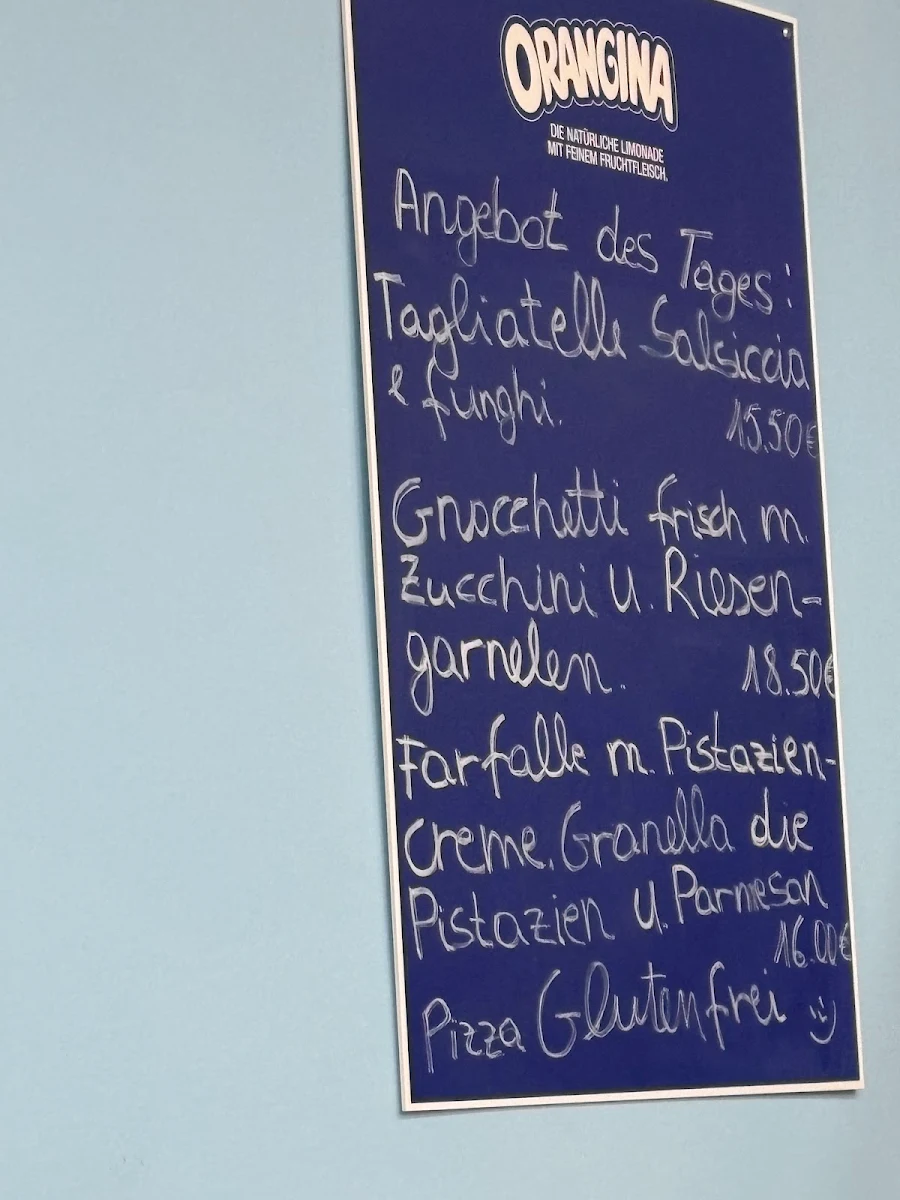 ORANGINA
DIE NATÜRLICHE LIMONADE
MIT FEINEM FRUCHTFLEISCH.
Angebot des Tages:
Tagliatelle Salsiccia
e funghi. 15.50€
Gnocchetti frisch m.
Zucchini u. Riesen-
garnelen. 18.50€
Farfalle m. Pistazien-
creme. Granella die
Pistazien u. Parmesan
16.00€
Pizza Glutenfrei :)